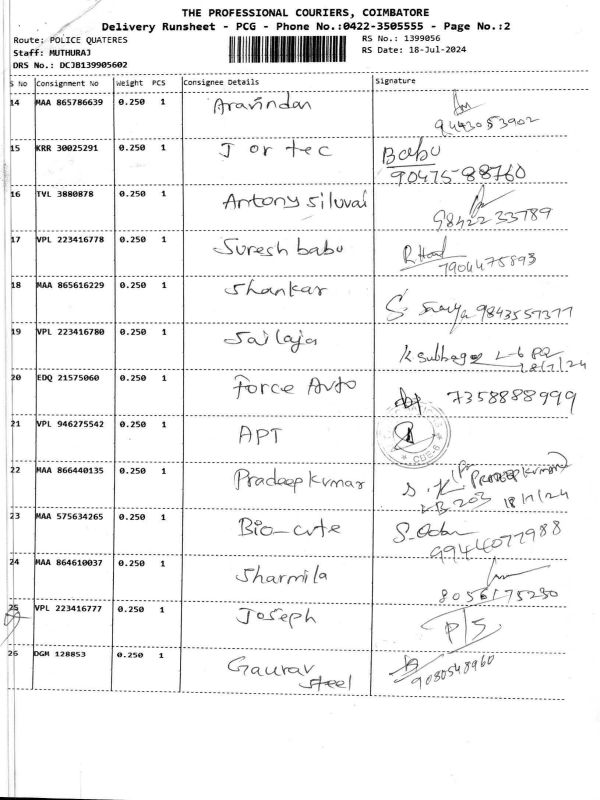 THE PROFESSIONAL COURIERS, COIMBATORE
Delivery Runsheet - PCG - Phone No.:0422-3505555 - Page No.:2
Route: POLICE QUATERES RS No.: 1399056
Staff: MUTHURAJ RS Date: 18-Jul-2024
DRS No.: DCJB139905602
S No Consignment No Weight PCS Consignee Details Signature
14 MAA 865786639 0.250 1 Aravindan
9443053902
15 KRR 30025291 0.250 1 J or tec Babu
90475-88760
16 TVL 3880878 0.250 1 Antony Siluvai
9842233789
17 VPL 223416778 0.250 1 Suresh babu
7904475893
18 MAA 865616229 0.250 1 Shankar
9843557377
19 VPL 223416780 0.250 1 Sailaja
18/7/24
20 EDQ 21575060 0.250 1 Force Auto 7358888999
21 VPL 946275542 0.250 1 APT
CBE-6
22 MAA 866440135 0.250 1 Pradeep kumar S. K (Pradeep kumar)
203 18/7/24
23 MAA 575634265 0.250 1 Bio-cute
9944077988
24 MAA 864610037 0.250 1 Sharmila
8056175230
25 VPL 223416777 0.250 1 Joseph
26 DGM 128853 0.250 1 Gaurav
Steel 9080548960